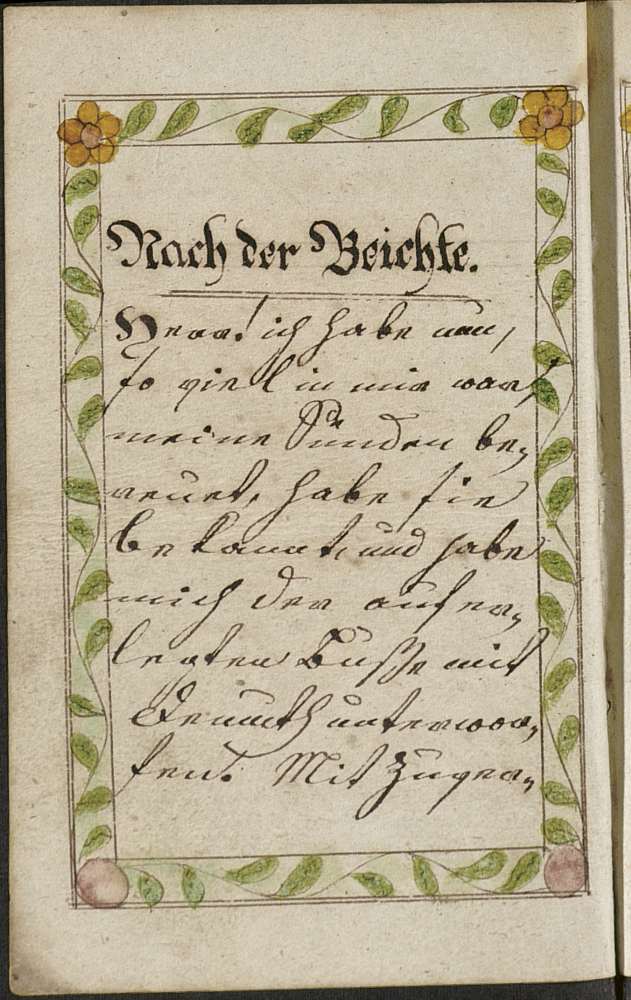 Nach der Beichte.
Herr! ich habe nun,
so viel in mir war,
meine Sünden be-
reuet, habe sie
bekannt, und habe
mich der aufer-
legten Busse mit
Demuth unterwor-
fen.
Mit